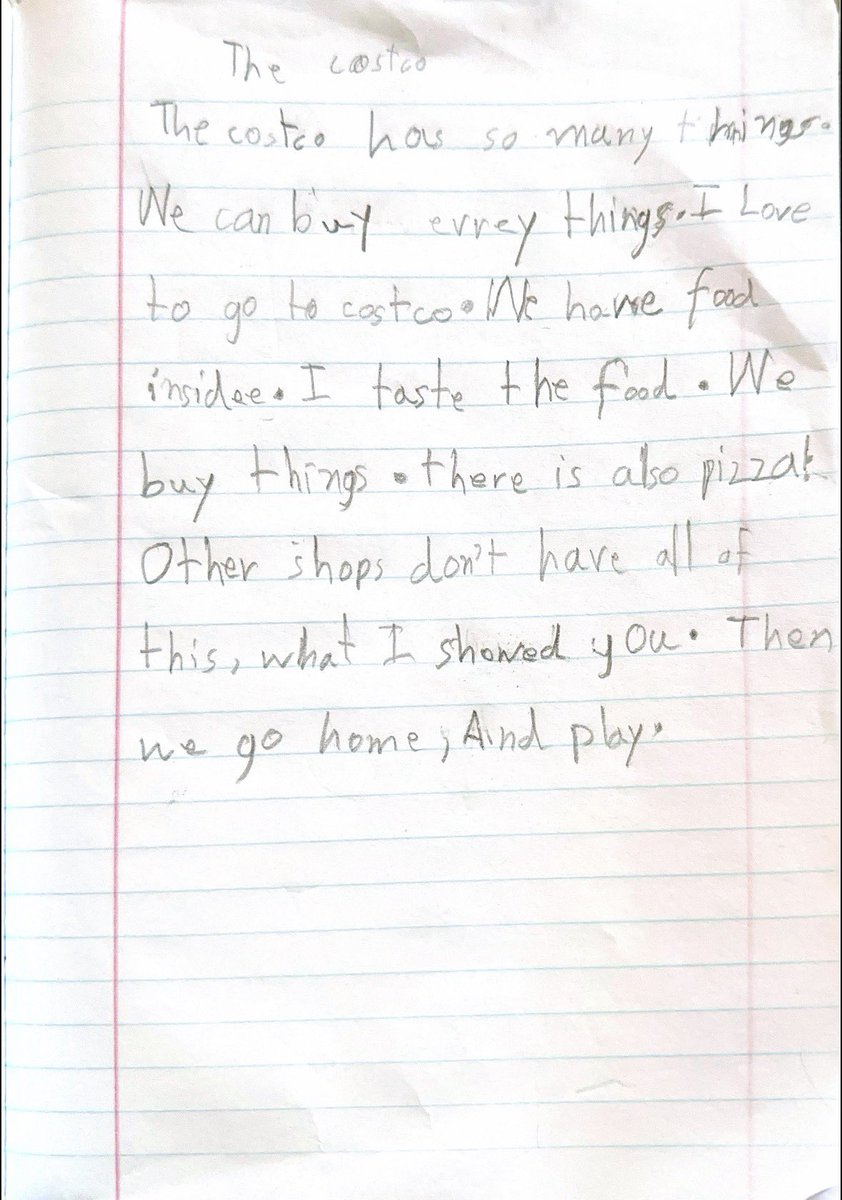 The costco
The costco has so many things.
We can buy errey things. I Love
to go to costco. We have food
insidee. I taste the food. We
buy things. there is also pizza!
Other shops don't have all of
this, what I showed you. Then
we go home, And play.